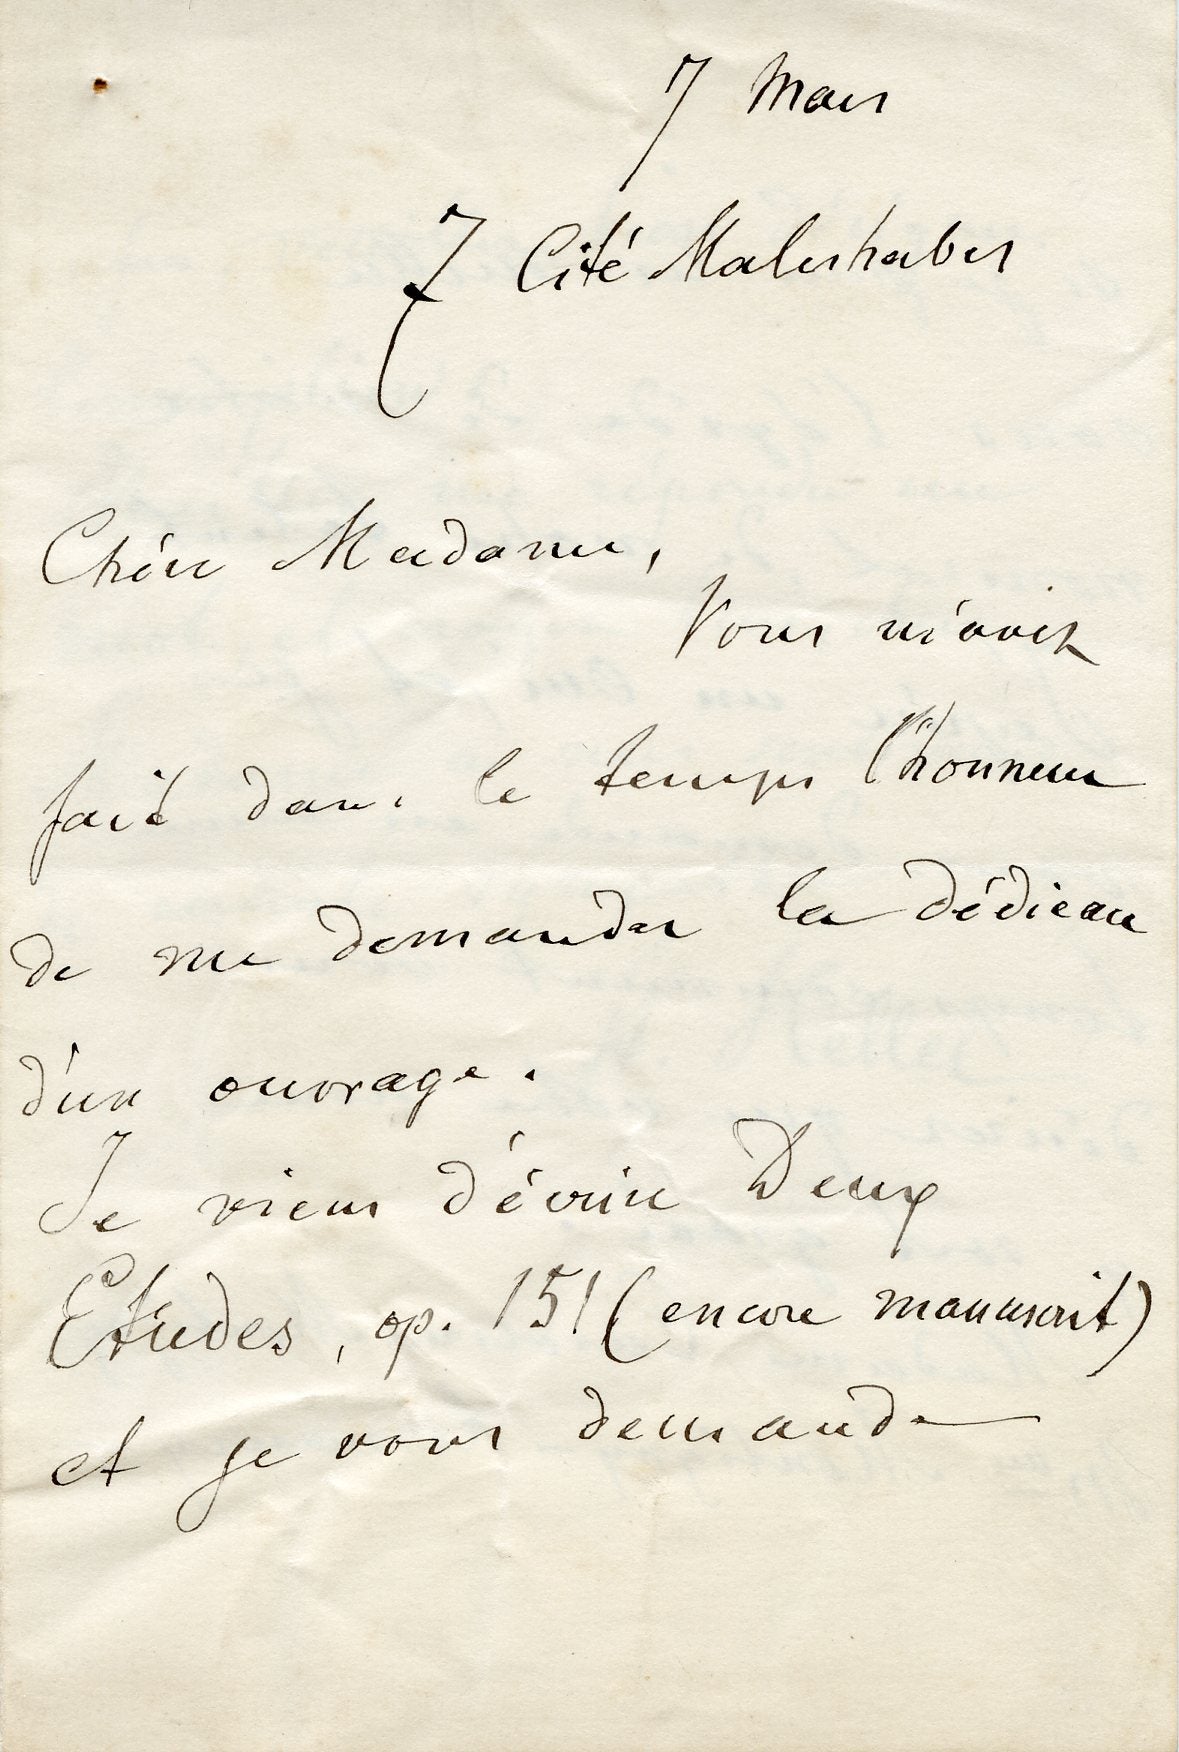 7 Mars
7 Cité Malesherbes
Chère Madame,
Vous m'avez
fait dans le temps l'honneur
de me demander la dédicace
d'un ouvrage.
Je viens d'écrire Deux
Etudes, op. 151 (encore manuscrit)
et je vous demande